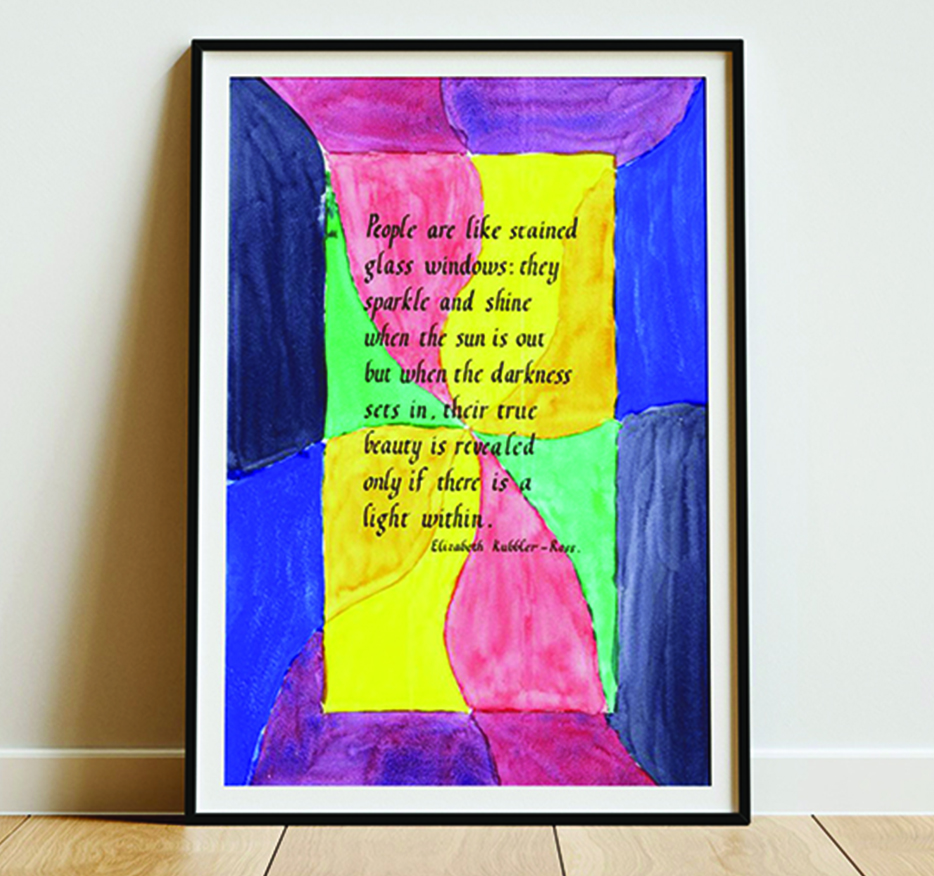 People are like stained
glass windows: they
sparkle and shine
when the sun is out
but when the darkness
sets in, their true
beauty is revealed
only if there is a
light within.
Elizabeth Kubbler-Ross.